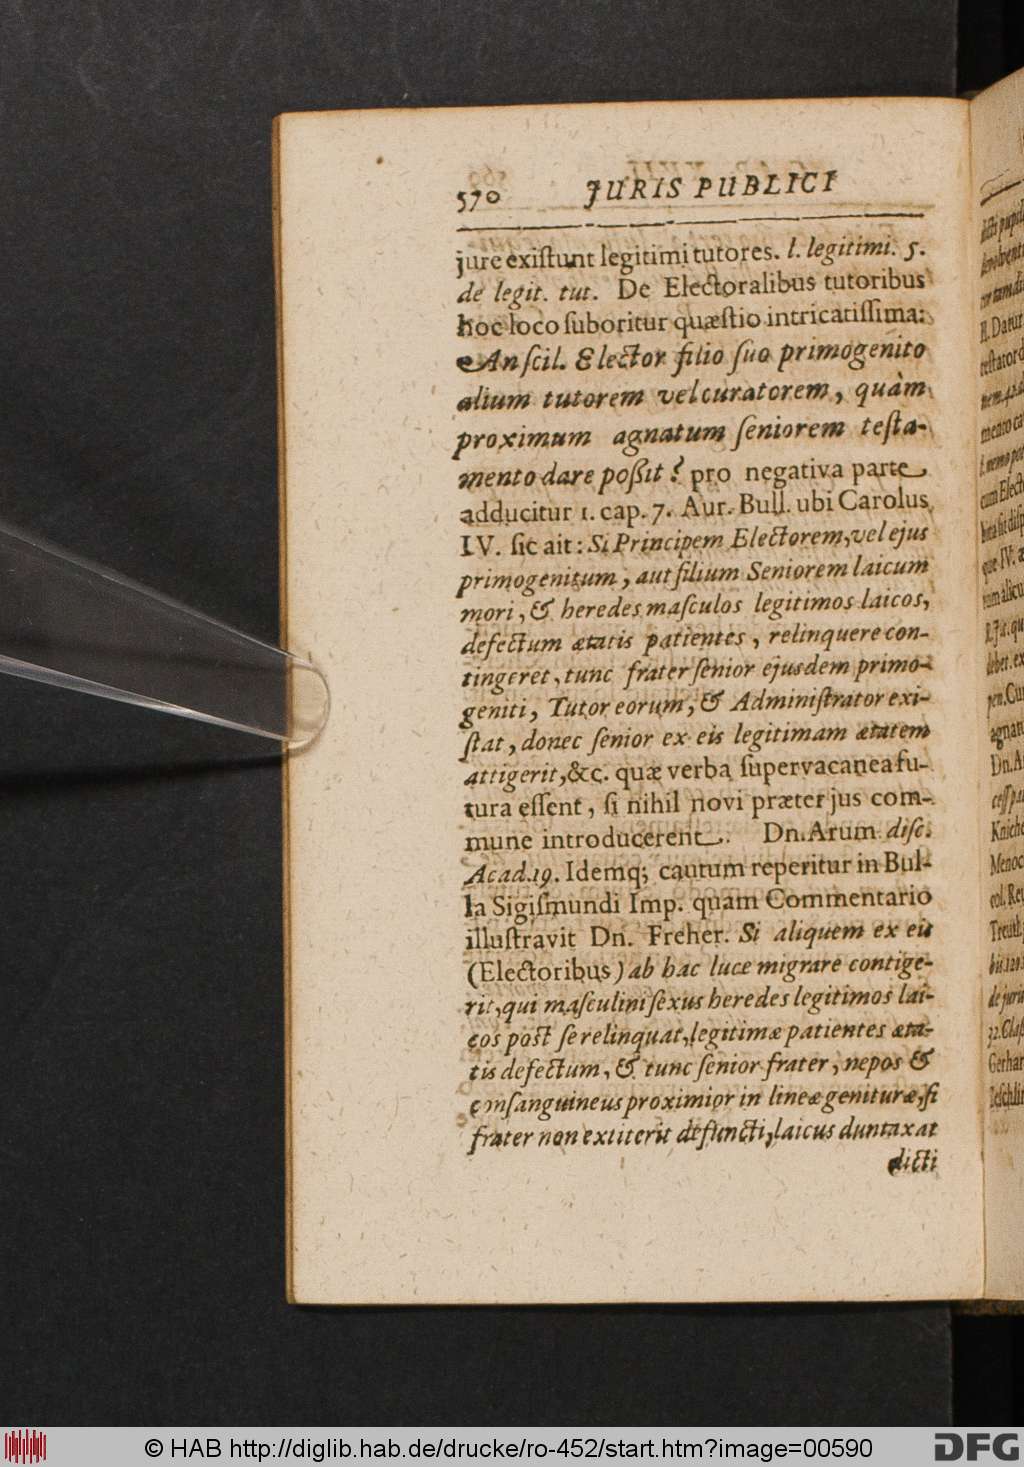 570 JURIS PUBLICI
jure exiſtunt legitimi tutores. l. legitimi. 5.
de legit. tut. De Electoralibus tutoribus
hoc loco ſuboritur quæſtio intricatiſſima:
An ſcil. Elector filio ſuo primogenito
alium tutorem vel curatorem, quàm
proximum agnatum ſeniorem teſta-
mento dare poßit? pro negativa parte
adducitur 1. cap. 7. Aur. Bull. ubi Carolus
IV. ſic ait: Si Principem Electorem, vel ejus
primogenitum, aut filium Seniorem laicum
mori, & heredes maſculos legitimos laicos,
defectum ætatis patientes, relinquere con-
tingeret, tunc frater ſenior ejusdem primo-
geniti, Tutor eorum, & Adminiſtrator exi-
ſtat, donec ſenior ex eis legitimam ætatem
attigerit, &c. quæ verba ſupervacanea fu-
tura eſſent, ſi nihil novi præter jus com-
mune introducerent. Dn. Arum. diſc.
Acad. 19. Idemq; cautum reperitur in Bul-
la Sigiſmundi Imp. quam Commentario
illuſtravit Dn. Freher. Si aliquem ex eis
(Electoribus) ab hac luce migrare contige-
rit, qui maſculini ſexus heredes legitimos lai-
cos post ſe relinquat, legitimæ patientes æta-
tis defectum, & tunc ſenior frater, nepos &
conſanguineus proximior in lineæ genituræ, ſi
frater non extiterit defuncti, laicus duntaxat
dicti
© HAB http://diglib.hab.de/drucke/ro-452/start.htm?image=00590
DFG